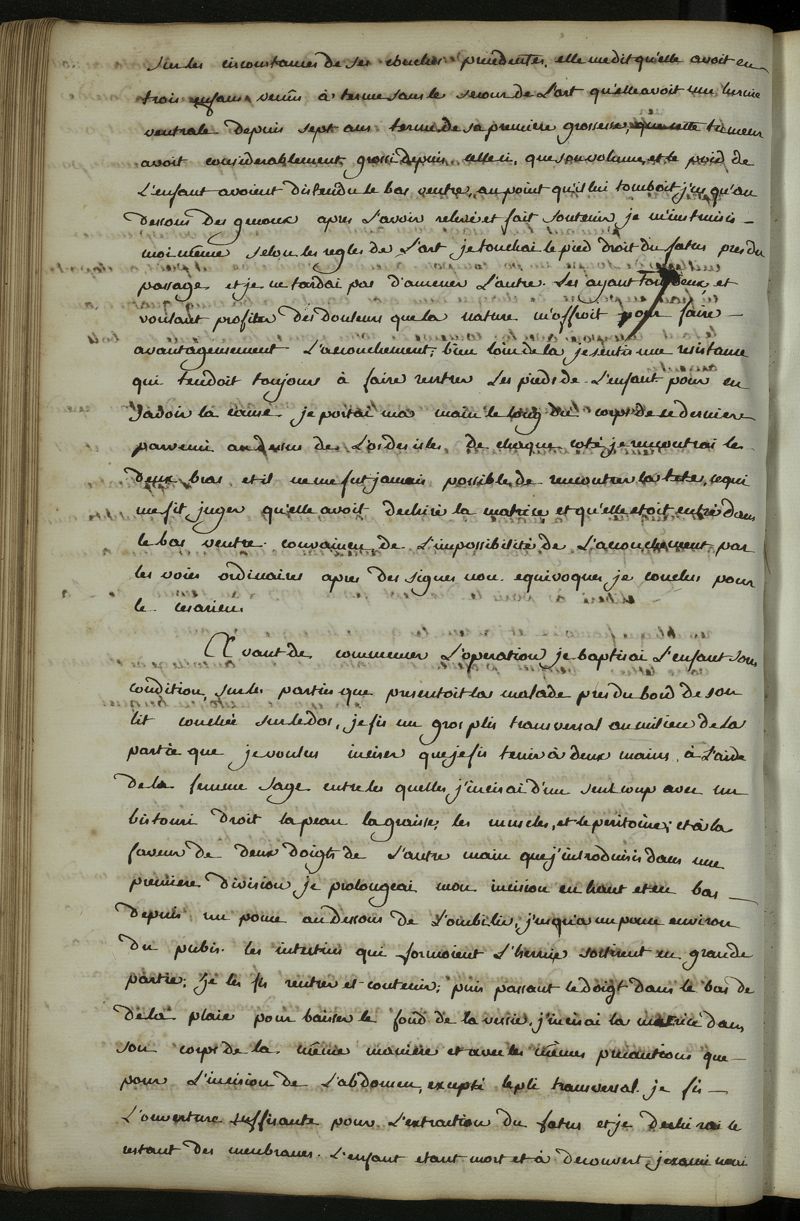 Sur les circonstances de ses couches précédentes, elle me dit qu'elle avoit eu
trois enfans venus à terme sans le secour de L'art qu'elle avoit une hernie
ventrale depuis sept ans terme de sa premiere grossesse, que cette tumeur
avoit considerablement grossi depuis celle ci, que son volume, et le poid de
L'enfant avoient distendu le bas ventre, au point qu'il lui tomboit jusqu'au
dessous des genoux apres L'avoir relevé et fait soutenir, je m'instruisis
moi même selon les regles de L'art je touchai le pied droit du fœtus pres du
passage et je ne tardai pas d'amener L'autre. Les ayant tous deux, et
voulant profiter des douleurs que la nature m'offroit pour faire
avantageusement L'acouchement, bien loin de la je sentis une resistance
qui tendoit toujours à faire rentrer les pieds de L'enfant pour en
savoir la cause je portai ma main le long du corps de ce dernier
parvenu au dessus de L'os des isles, de chaque coté je rencontrai les
deux bras et il ne me fut jamais possible de rencontrer la tete, ce qui
me fit juger qu'elle avoit dechiré la matrice et qu'elle etoit entré dans
le bas ventre. convaincu de L'impossibilité de L'acouchement par
les voies ordinaires apres des signes non equivoques, je conclus pour
le cesarien.
Avant de commencer L'operation je baptisai L'enfant sous
condition, sur les parties que presentoit la malade pres du bord de son
lit couchée sur le dos, je fis un gros plis transversal au milieu de la
partie que je voulus inciser que je fis tenir à deux mains, à L'aide
de la femme sage entre les quelles j'incisai d'un seul coup avec un
bistouri droit la peau la graisse, les muscles, et le peritoine; et à la
faveur de deux doigts de L'autre main que j'introduisis dans une
premiere division je prolongeai mon incision en haut et en bas
depuis un pouce au dessous de L'ombilic, jusqu'a un pouce environ
du pubis. les intestins qui formoient L'hernie sortirent en grande
partie; je les fis rentrer et contenir; puis passant le doigt dans le bas de
de la plaie pour baisser le fond de la vessie, j'incisai la matrice dans
son corps de la même maniere et avec les mêmes precautions que
pour L'incision de L'abdomen, excepté le pli transversal. je fis
L'ouverture suffisante pour L'extraction du fœtus et je dechirai le
restant des membranes. L'enfant etant mort et à decouvert,